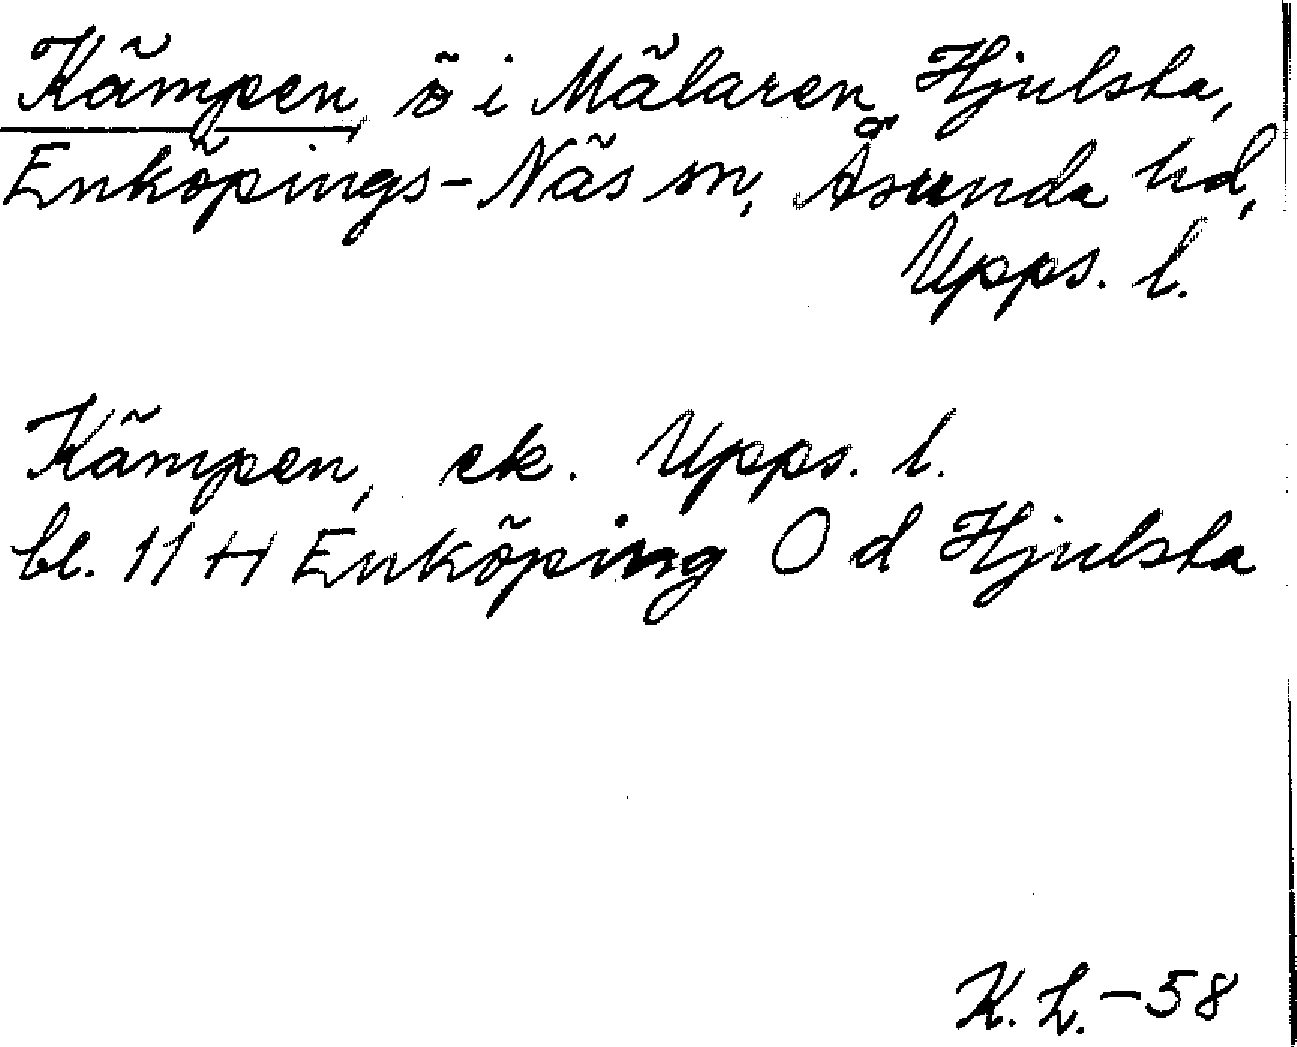 Kämpen, ö i Mälaren, Hjulsta,
Enköpings-Näs sn, Åsunda hd,
Upps. l.
Kämpen, ek. Upps. l.
bl. 11 H Enköping O d Hjulsta
K. L. - 58